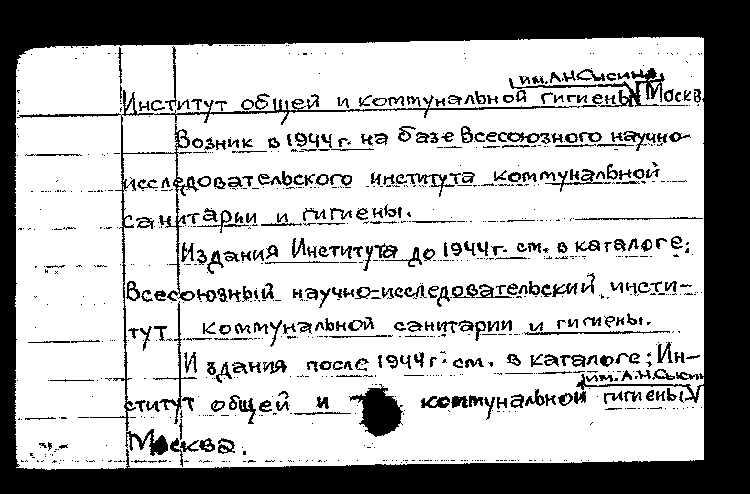 им. А.Н.Сысина
Институт общей и коммунальной гигиены Москва
Возник в 1944 г. на базе Всесоюзного научно-
исследовательского института коммунальной
санитарии и гигиены.
Издания Института до 1944 г. см. в каталоге:
Всесоюзный научно-исследовательский инсти-
тут коммунальной санитарии и гигиены.
Издания после 1944 г. см. в каталоге; Ин-
им. А.Н.Сысин
ститут общей и коммунальной гигиены
Москва.